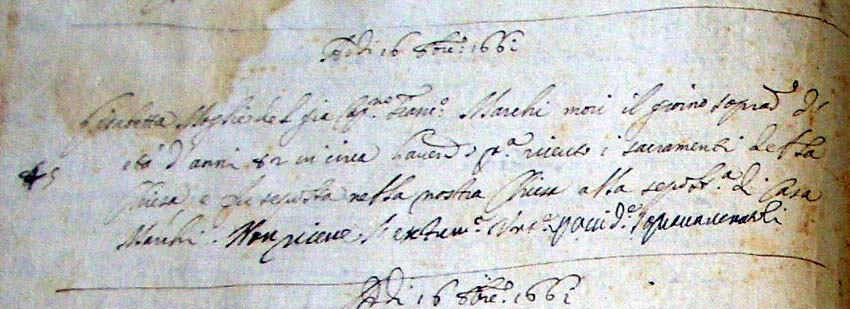 Adi 16 8bre: 1661
Moglie del gia Cap.no Franc.o Marchi morì il giorno soprad.o di
età d'anni 82 in circa havendo p.a riceuto i sacramenti della
Chiesa e fu sepolta nella nostra Chiesa alla sepolt.a di Casa
Marchi. Non riceve l'extrem.a
Adi 16 8bre: 1661